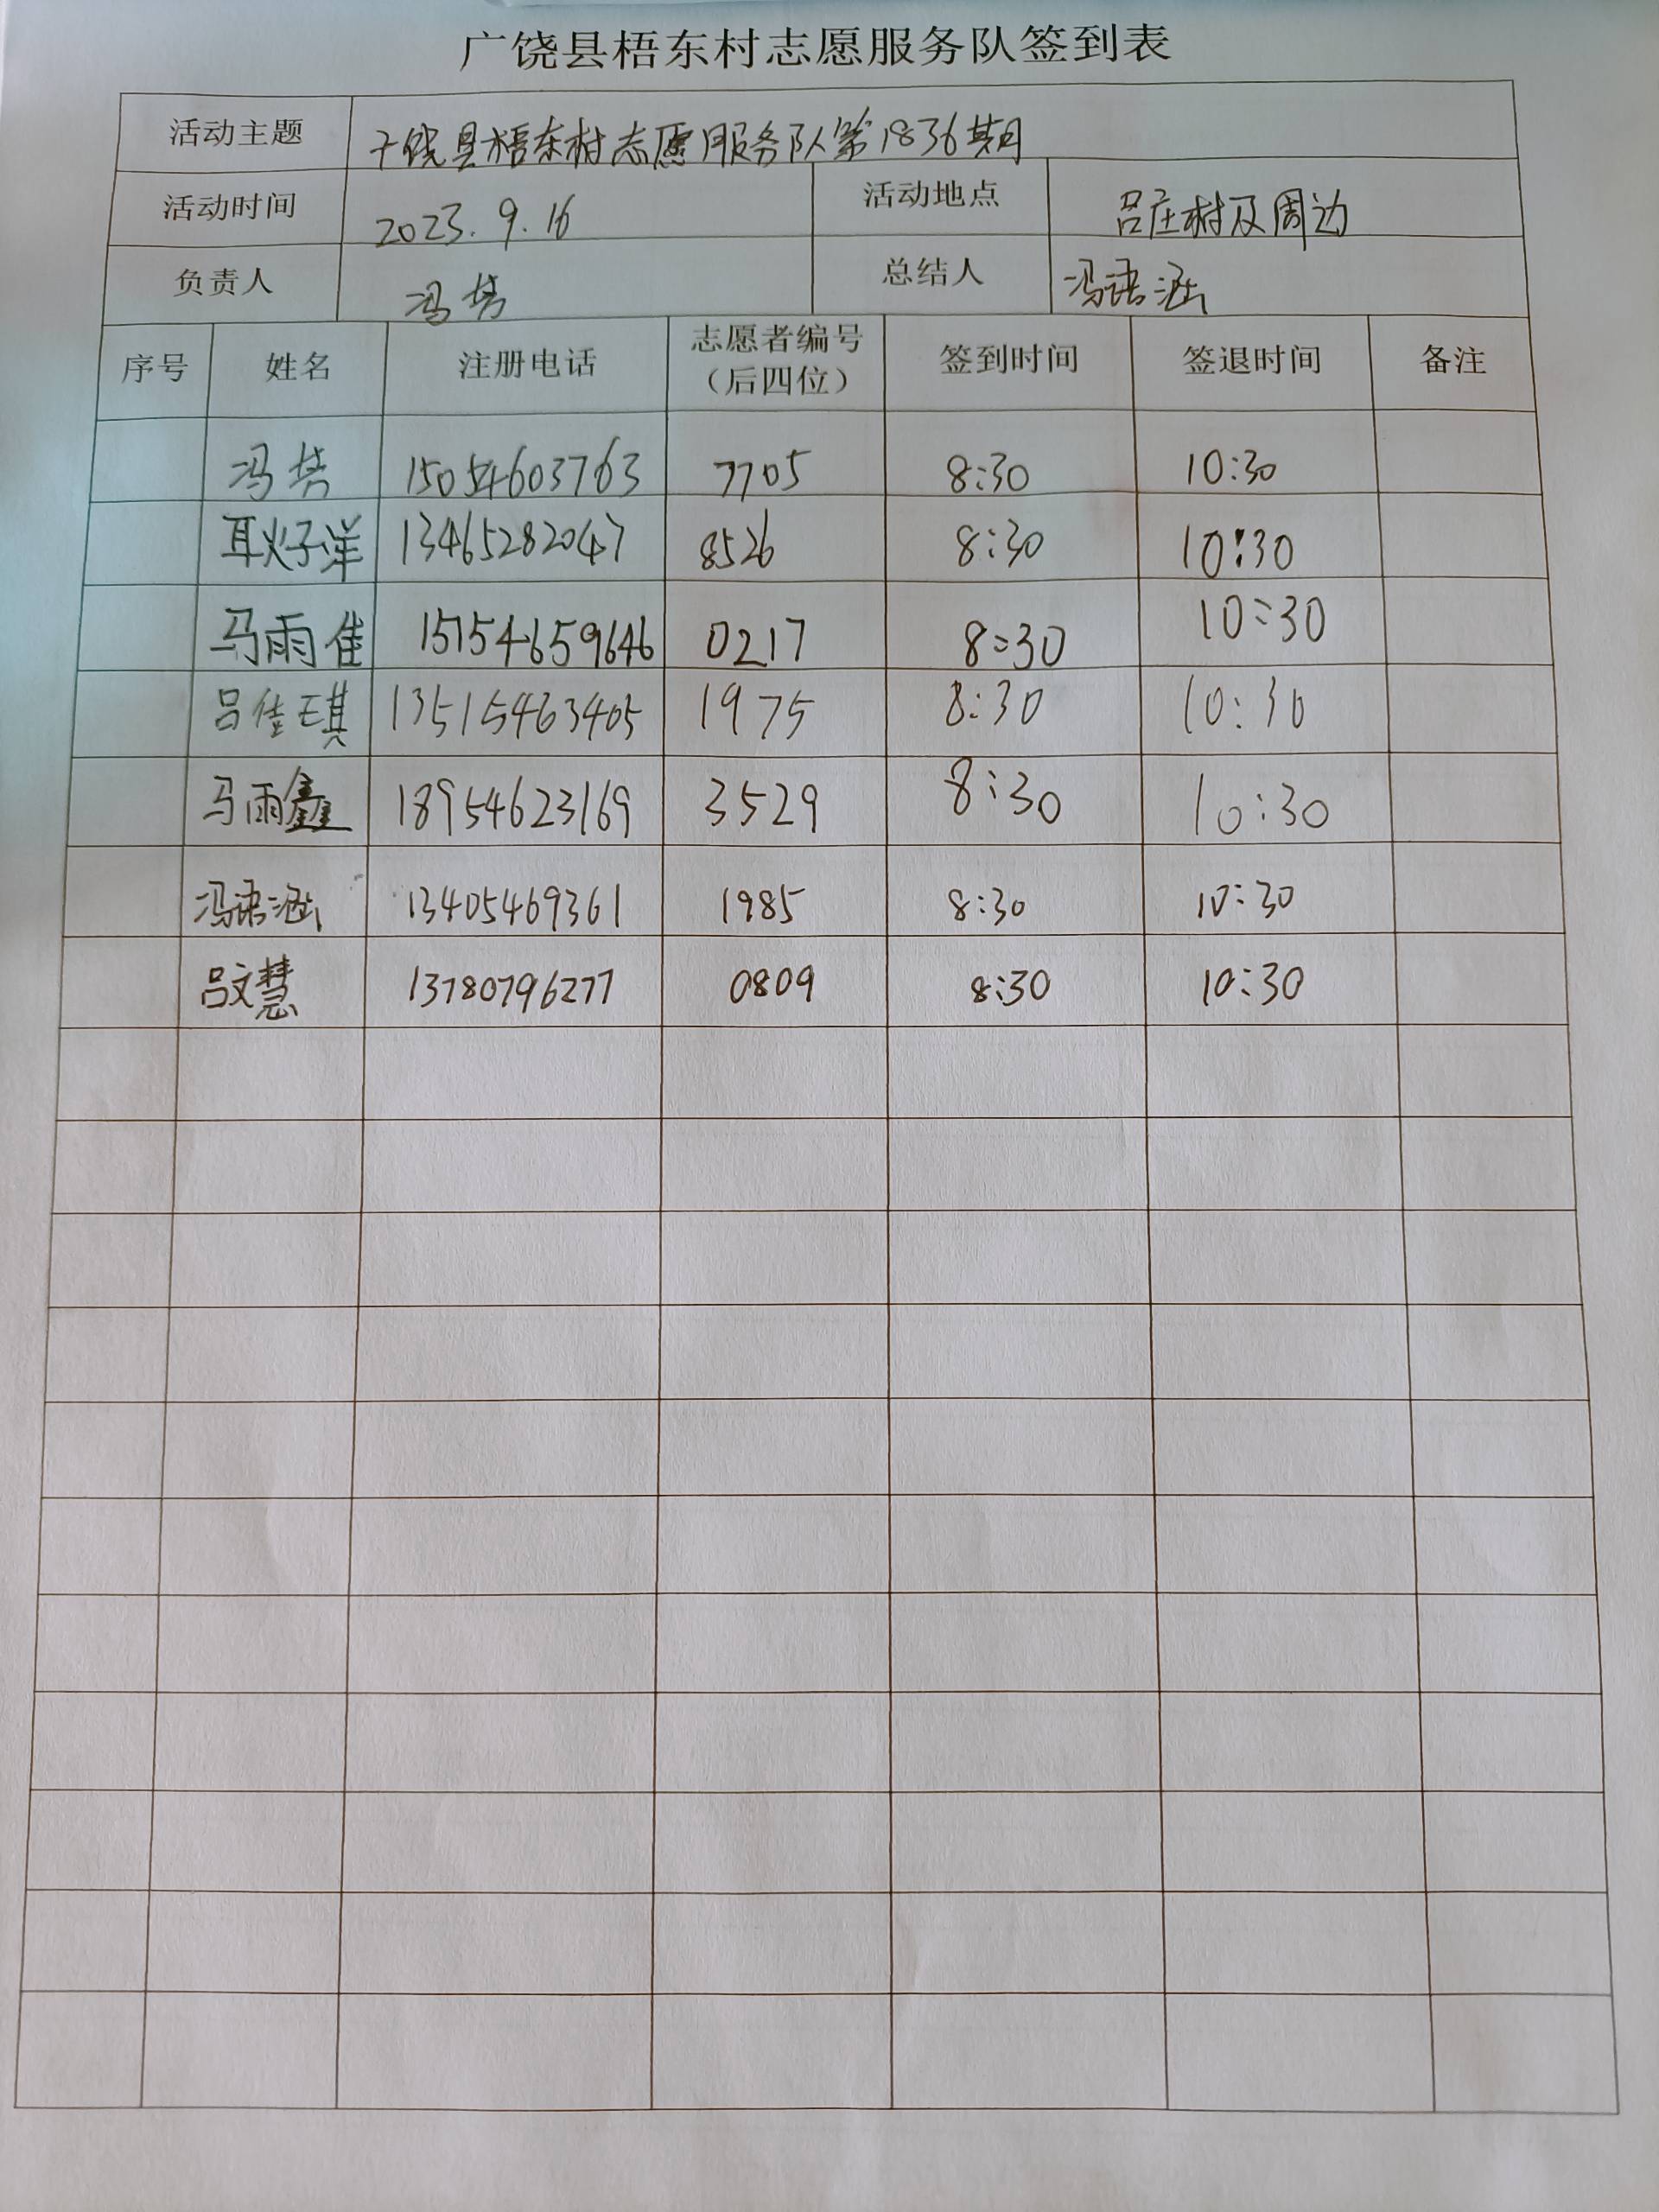 广饶县梧东村志愿服务队签到表
活动主题 广饶县梧东村志愿服务队第1836期
活动时间 2023.9.16 活动地点 吕庄村及周边
负责人 冯 总结人 冯语涵
序号 姓名 注册电话 志愿者编号（后四位） 签到时间 签退时间 备注
冯 15054603763 7705 8:30 10:30
耿子洋 13465282047 8526 8:30 10:30
马雨佳 15154659646 0217 8:30 10:30
吕佳琪 13515463405 1975 8:30 10:30
马雨鑫 18954623169 3529 8:30 10:30
冯语涵 13405469361 1985 8:30 10:30
吕文慧 13780796277 0809 8:30 10:30